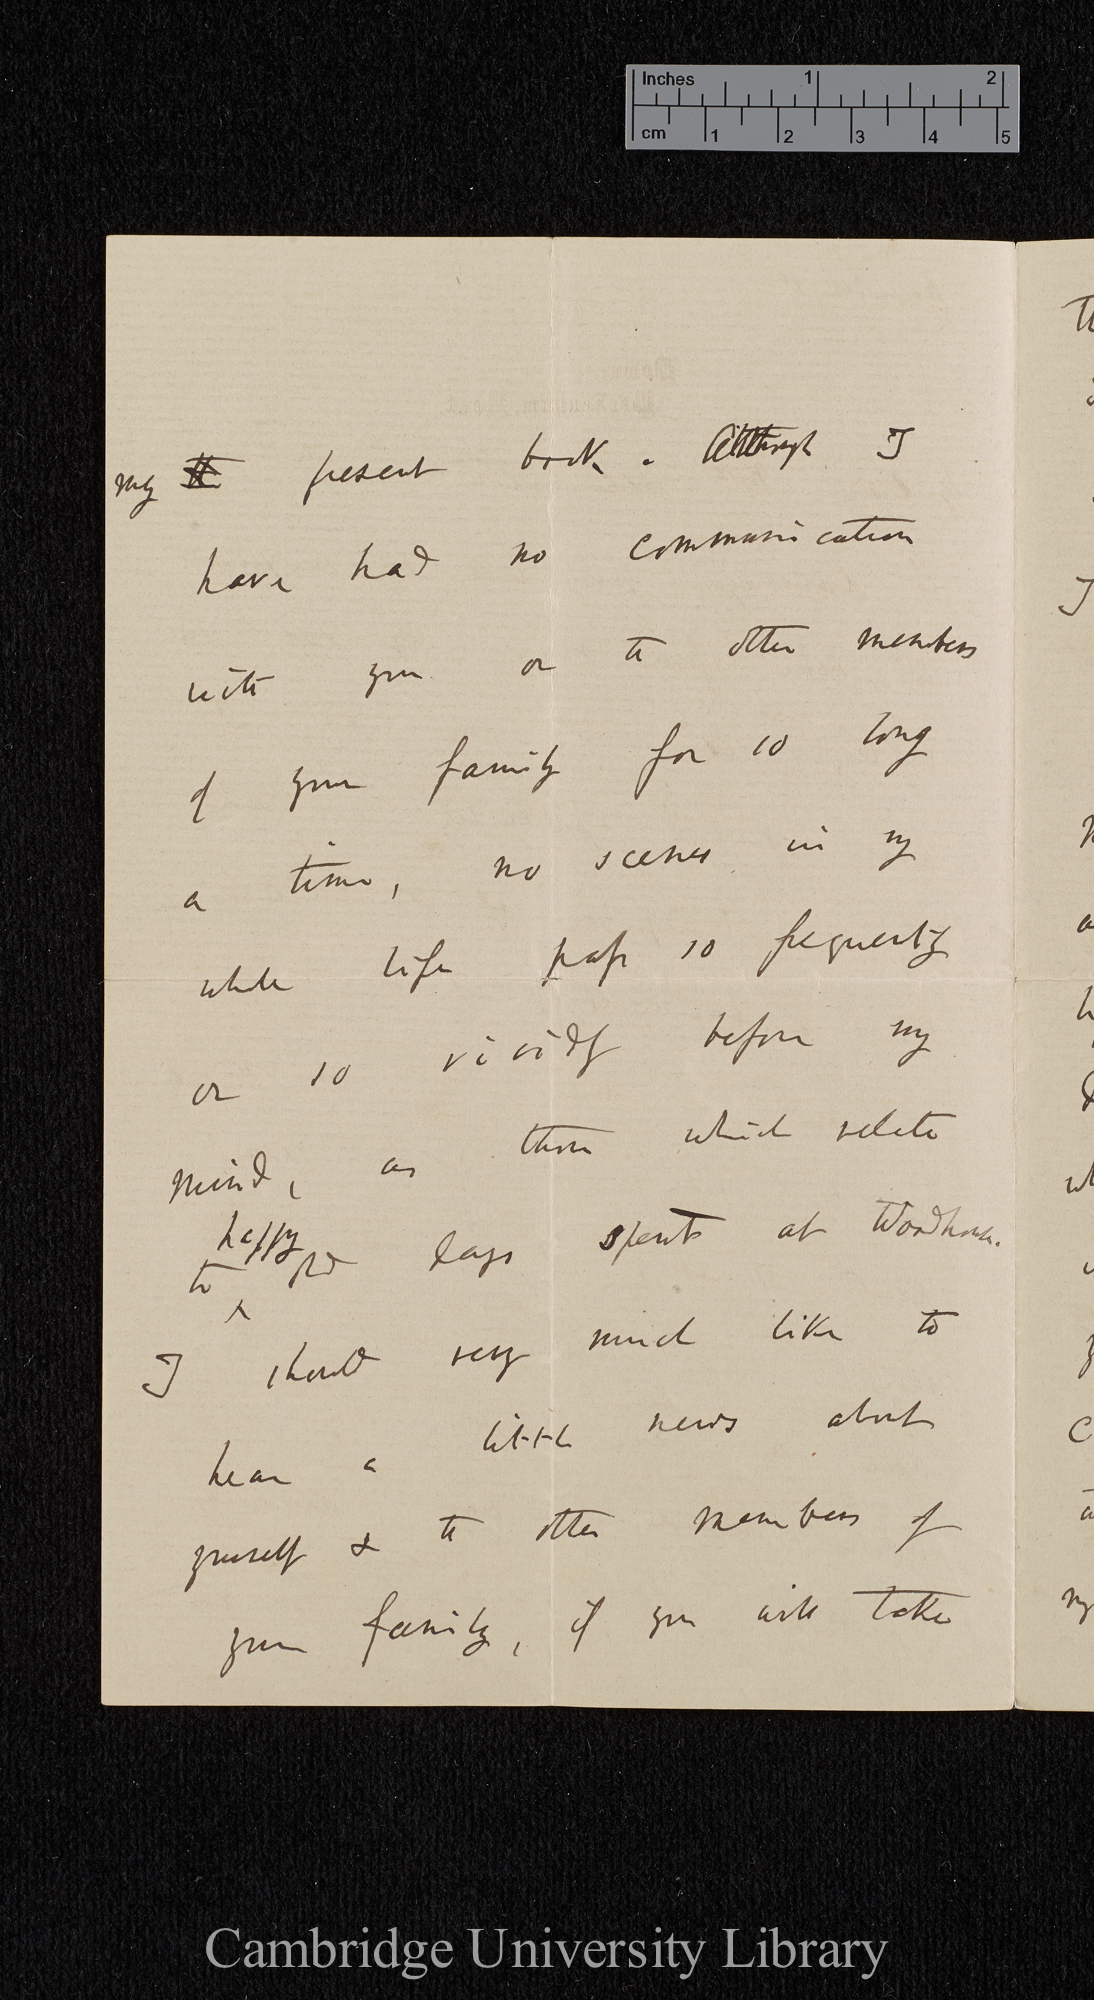 Inches 1 2
cm 1 2 3 4 5
my present book. Although I
have had no communication
with you or the other members
of your family for so long
a time, no scenes in my
whole life pass so frequently
or so vividly before my
mind, as those which relate
to happy old days spent at Woodhouse.
I should very much like to
hear a little news about
yourself & the other members of
your family, if you will take
Cambridge University Library